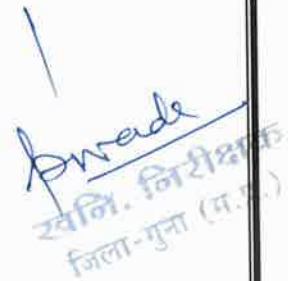 खनि. निरीक्षक
जिला-गुना (म.प्र.)